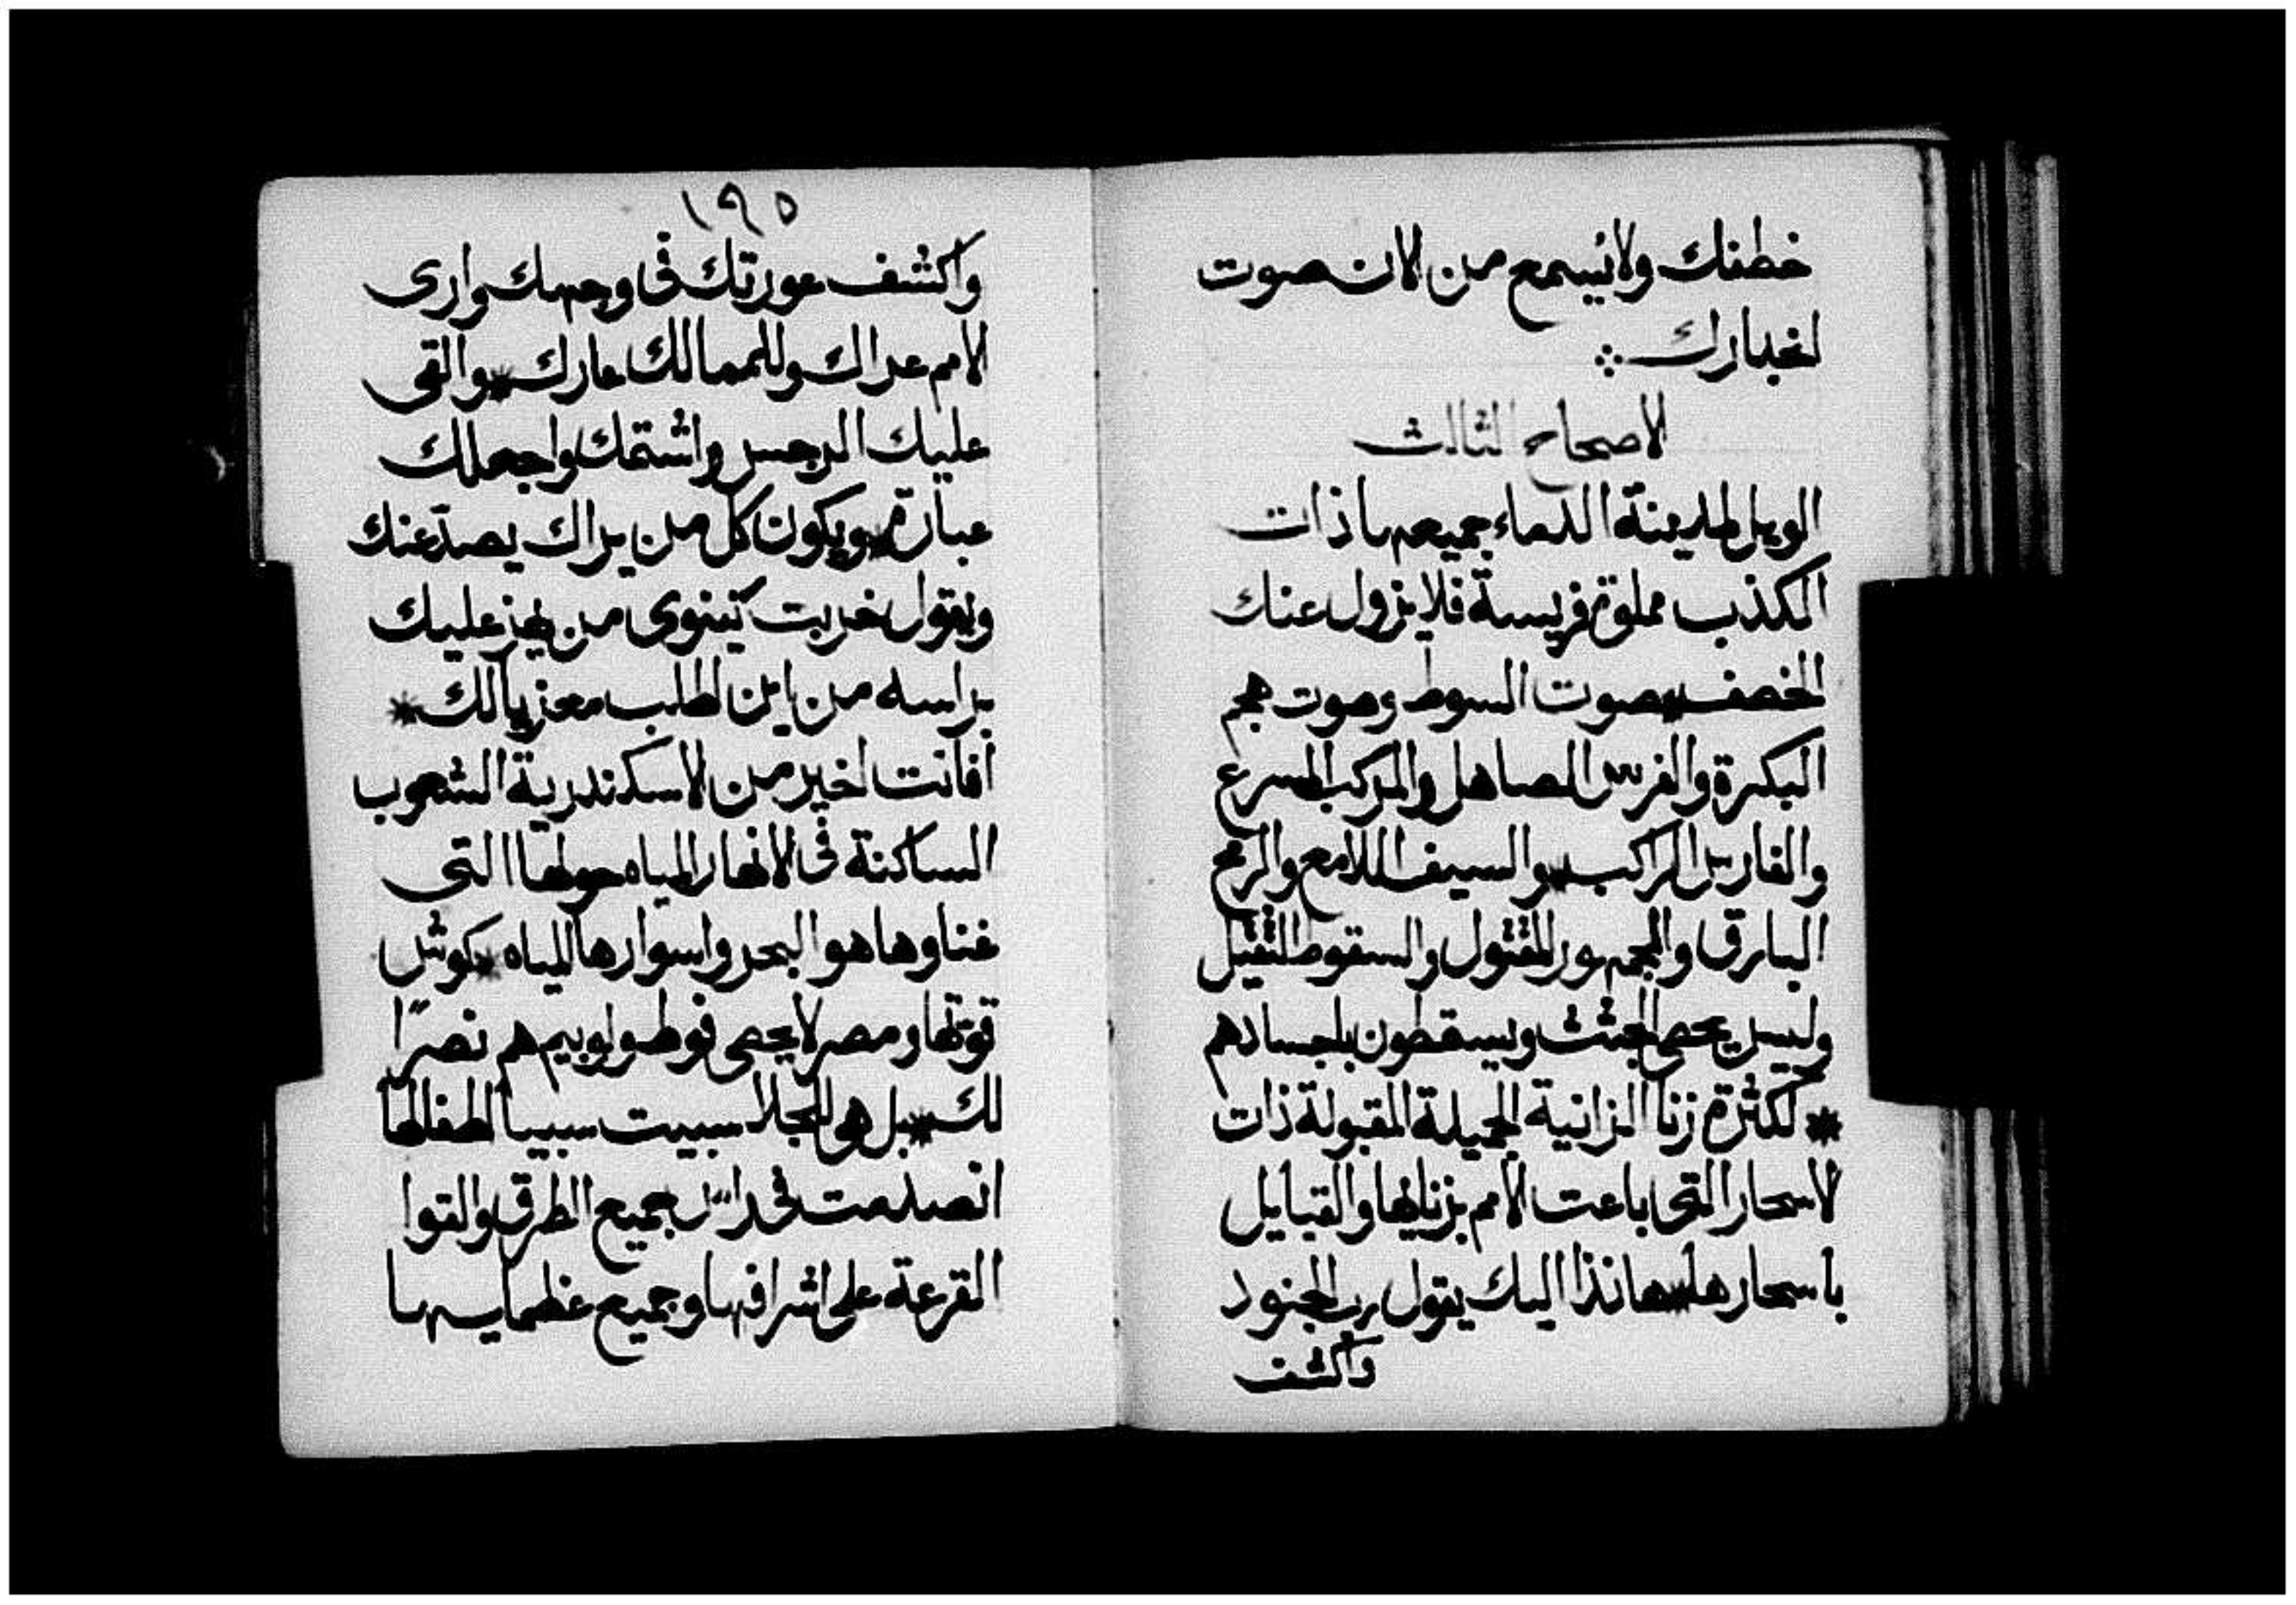 خطفك ولا يسمع من الان صوت
اخبارك
الاصحاح الثالث
الويل لمدينة الدماء جميعها ذات
الكذب مملوة فريسة فلا يزول عنك
الخصف صوت السوط وصوت هجم
البكرة والفرس الصاهل والمركب المسرع
والفارس الراكب والسيف اللامع والرمح
البارق والجمهور المقتول والسقوط الثقيل
وليس يحصى الجثث ويسقطون باجسادهم
* لكثرة زنا الزانية الجميلة المقبولة ذات
الاسحار التي باعت الامم بزنايها والقبايل
باسحارها * هانذا اليك يقول رب الجنود
واكشف
١٩٥
واكشف عورتك في وجهك واري
الامم عراك وللممالك عارك * والقى
عليك الرجس واشتمك واجعلك
عبارة * ويكون كل من يراك يصد عنك
ويقول خربت نينوى من يهز عليك
براسه من اين اطلب معزيا لك *
افانت اخير من الاسكندرية الشعوب
الساكنة في الانهار المياه حولها التي
غناوها هو البحر واسوارها المياه * كوش
قوتها ومصر لا يحصى فوط ولوبيم هم نصرًا
لك * بل هي للجلا سبيت سبيا اطفالها
انصدمت في راس جميع الطرق والقوا
القرعة على اشرافها وجميع عظمايها